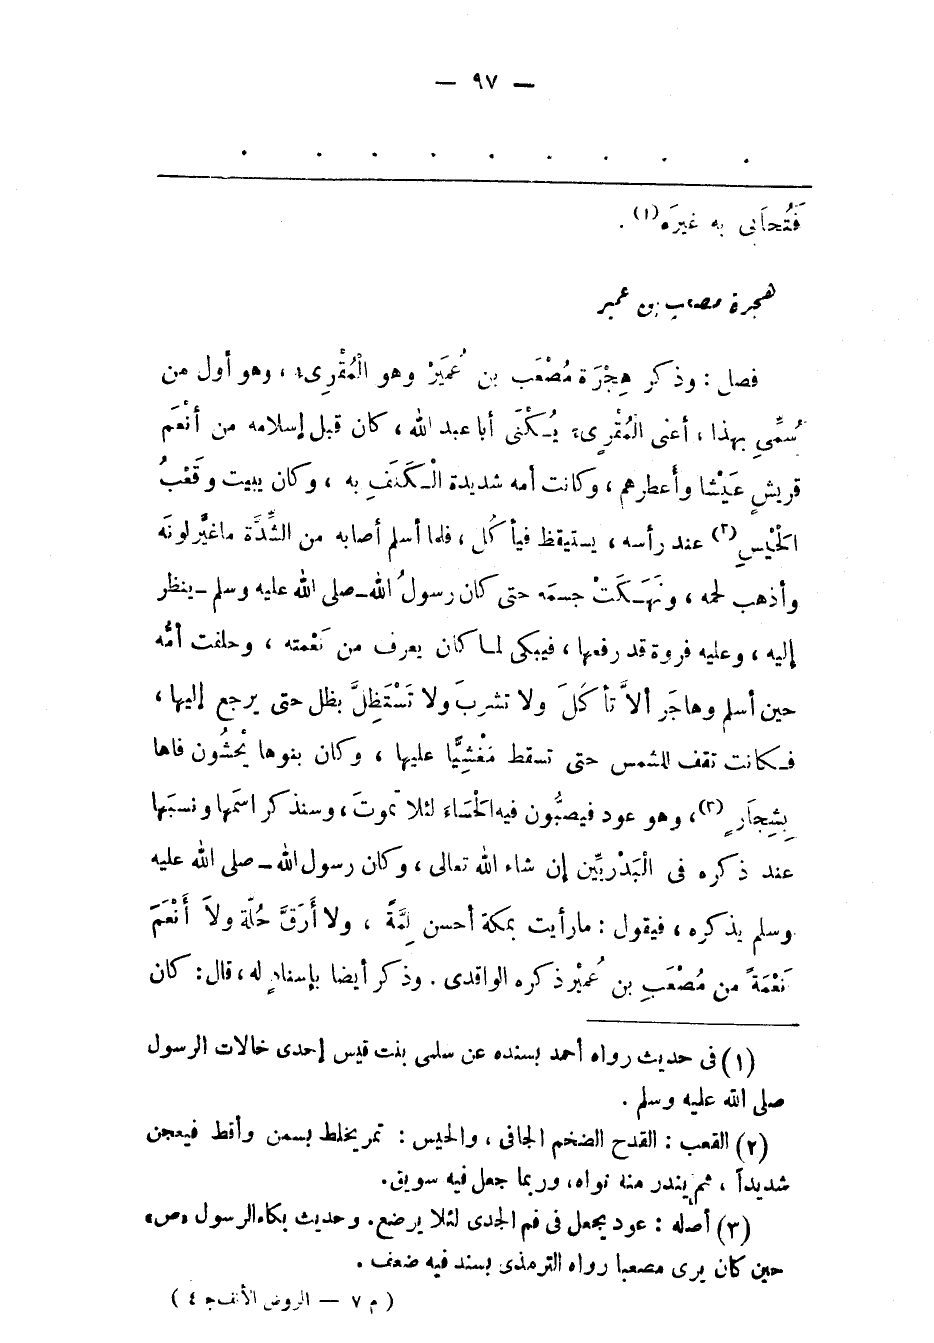 — ٩٧ —
فَتُحابى به غيرَه (١) .
هجرة مصعب بن عمير
فصل : وذكر هِجْرَة مُصْعَب بن عُمَيَرْ وهو الْمُقْرِىء ، وهو أول من
سُمِّىِ بهذا ، أعنى الْمُقْرِىءَ يُـكْنَى أبا عبد الله ، كان قبل إسلامه من أَنْعَم
قريشٍ عَيْشا وأعطرهم ، وكانت أمه شديدة الْـكَنَفِ به ، وكان يبيت وقَعْبُ
الْحَيْسِ (٢) عند رأسه ، يستيقظ فيأكُل ، فلما أسلم أصابه من الشِّدَّة ماغيَّر لونَه
وأذهب لحمه ، ونَهَـكَتْ جسمَه حتى كان رسولُ الله ـ صلى الله عليه وسلم ـ ينظر
إليه ، وعليه فروة قد رفعها ، فيبكى لمـا كان يعرف من نَعْمته ، وحلفت أمُّه
حين أسلم وهاجَر ألاَّ تأكلَ ولا تشربَ ولا تَسْتَظِلَّ بظل حتى يرجع إليها ،
فـكانت تقف للشمس حتى تسقط مَغْشِيًّا عليها ، وكان بنوها يَحْشُون فاها
بِشِجَارٍ (٣) ، وهو عود فيصبُّون فيه الْحَسَاءَ لئلا تموتَ ، وسنذكر اسمَها ونسبَها
عند ذكره فى الْبَدْرِيِّين إن شاء الله تعالى ، وكان رسول الله ـ صلى الله عليه
وسلم يذكره ، فيقول : مارأيت بمكة أحسن لِمَّةً ، ولا أَرَقَّ حُلّة ولاَ أَنْعَمَ
نَعْمَةً من مُصْعَبِ بن عُمَيْر ذكره الواقدى . وذكر أيضا بإسنادٍ له ، قال : كان
(١) فى حديث رواه أحمد بسنده عن سلمى بنت قيس إحدى خالات الرسول
صلى الله عليه وسلم .
(٢) القعب : القدح الضخم الجافى ، والحيس : تمر يخلط بسمن وأقط فيعجن
شديداً ، ثم يندر منه نواه ، وربما جعل فيه سويق .
(٣) أصله : عود يجعل فى فم الجدى لئلا يرضع . وحديث بكاء الرسول «ص»
حين كان يرى مصعبا رواه الترمذى بسند فيه ضعف .
( م ٧ — الروض الأنف ج ٤ )